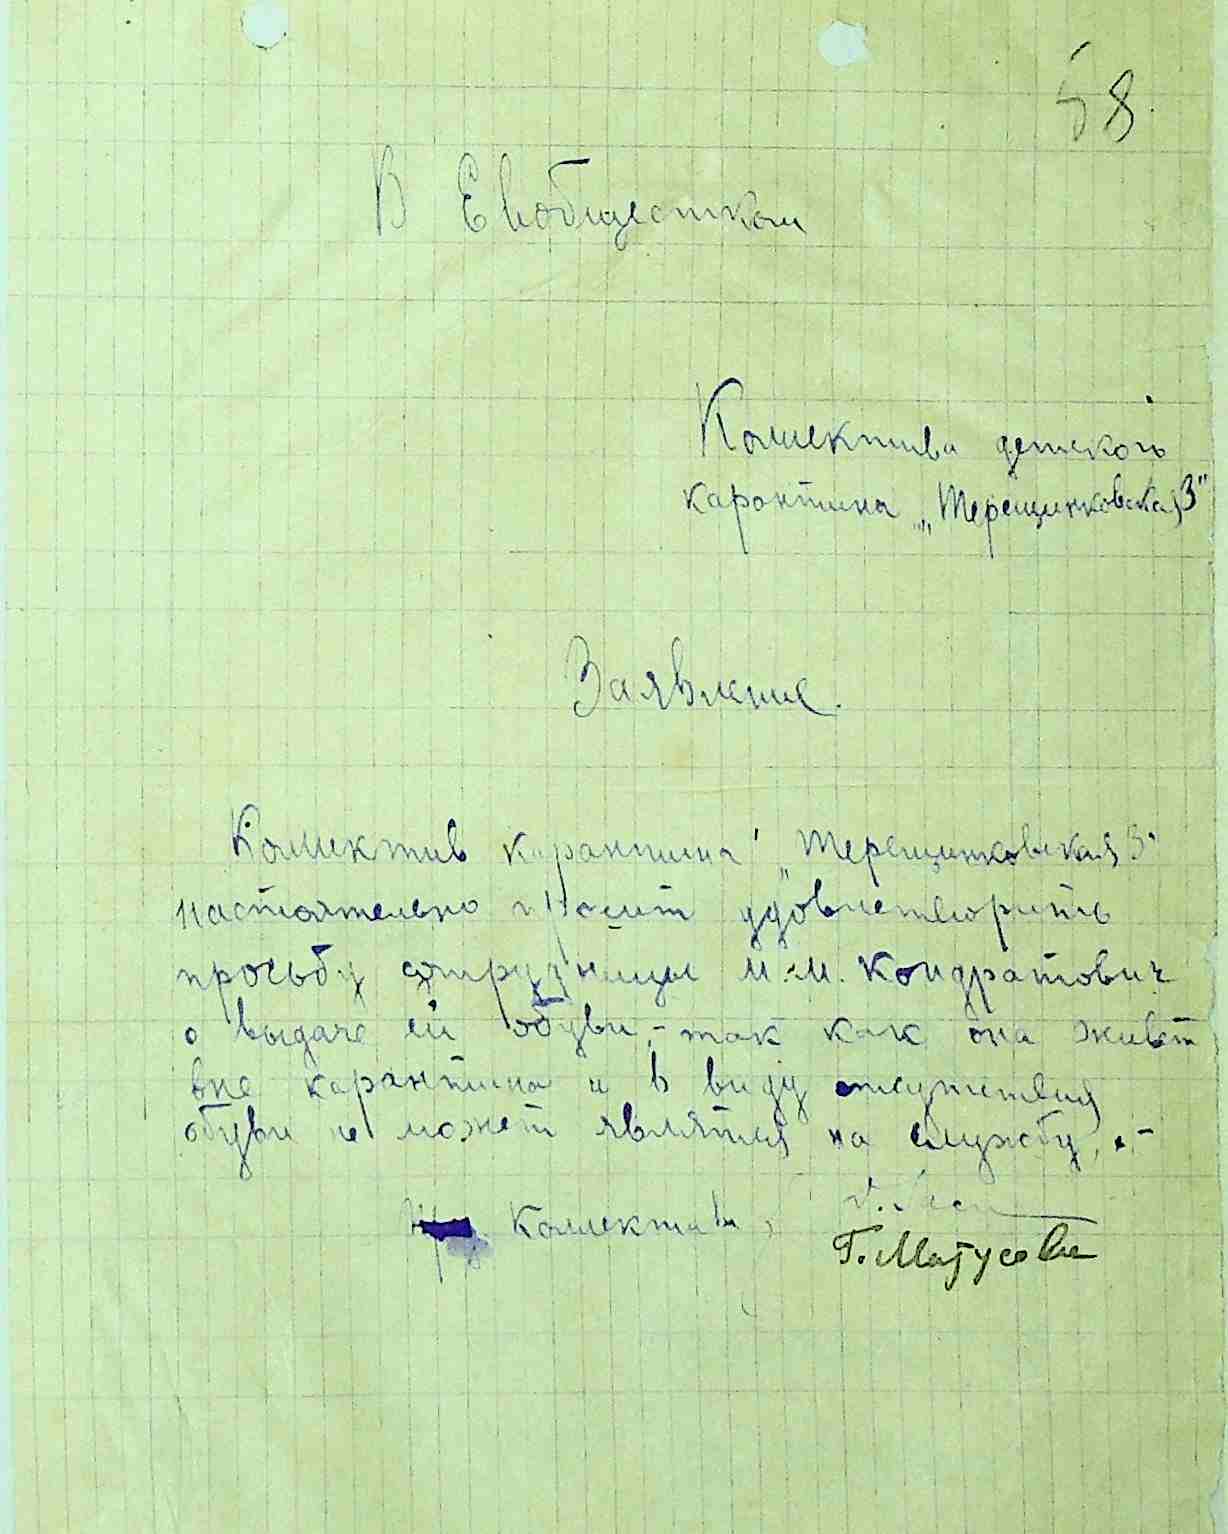 58
В Евобщестком
Коллектива детского
карантина „Терещинковская 3"
Заявление.
Коллектив карантина „Терещинковская 3"
настоятельно просит удовлетворить
просьбу сотрудницы М.М. Кондратович
о выдаче ей обуви, – так как она живет
вне карантина и в виду отсутствия
обуви не может являться на службу. –
Коллектива,
Г. Матусов